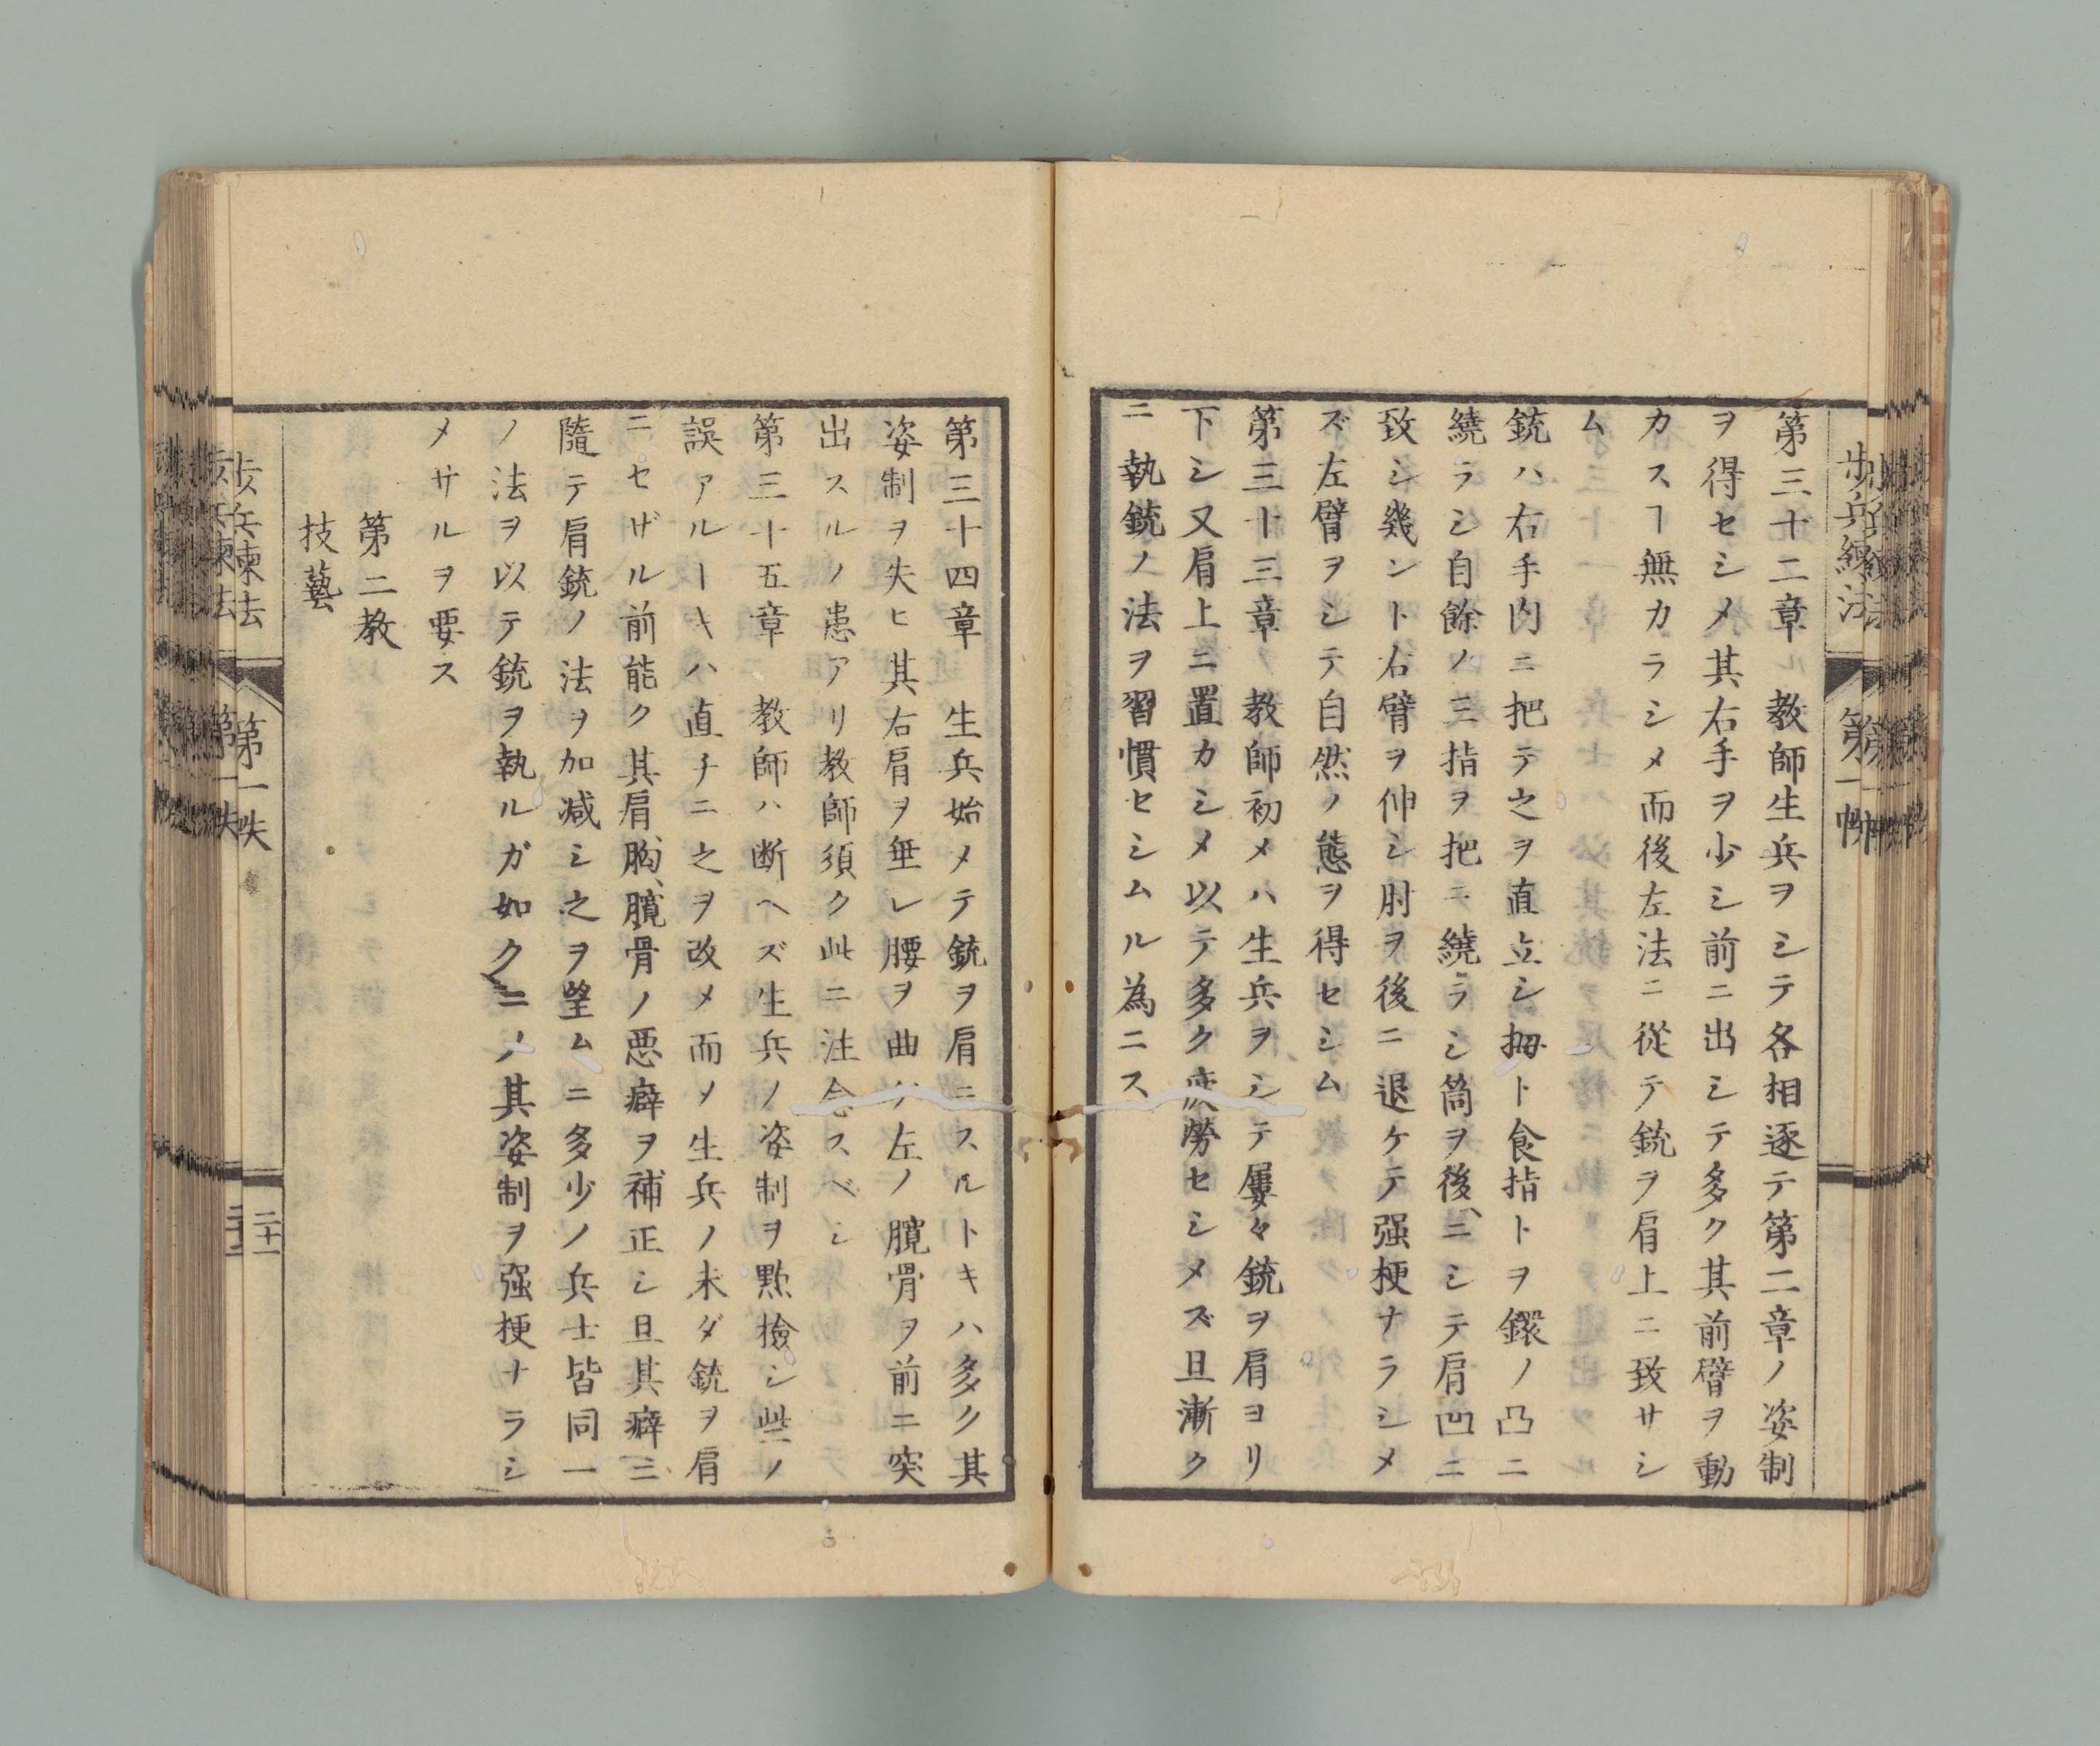 第三十二章 教師生兵ヲシテ各相逐テ第二章ノ姿制
ヲ得セシメ其右手ヲ少シ前ニ出シテ多ク其前臂ヲ動
カスヿ無カラシメ而後左法ニ從テ銃ヲ肩上ニ致サシ
ム
銃ハ右手内ニ把テ之ヲ直立シ拇ト食指トヲ鐶ノ凸ニ
繞ラシ自餘ノ三指ヲ把ニ繞ラシ筒ヲ後ニシテ肩凹ニ
致シ幾ント右臂ヲ伸シ肘ヲ後ニ退ケテ强梗ナラシメ
ズ左臂ヲシテ自然ノ態ヲ得セシム
第三十三章 教師初メハ生兵ヲシテ屢々銃ヲ肩ヨリ
下シ又肩上ニ置カシメ以テ多ク疲勞セシメズ且漸ク
ニ執銃ノ法ヲ習慣セシムル為ニス
第三十四章 生兵始メテ銃ヲ肩ニスルトキハ多ク其
姿制ヲ失ヒ其右肩ヲ垂レ腰ヲ曲ゲ左ノ臗骨ヲ前ニ突
出スルノ患アリ教師須ク此ニ注念スベシ
第三十五章 教師ハ断ヘズ生兵ノ姿制ヲ㸃撿シ些ノ
誤アルーキハ直チニ之ヲ改メ而メ生兵ノ未ダ銃ヲ肩
ニセザル前能ク其肩、胸、臗骨ノ悪癖ヲ補正シ且其癖ニ
隨テ肩銃ノ法ヲ加减シ之ヲ望ムニ多少ノ兵士皆同一
ノ法ヲ以テ銃ヲ執ルガ如クニノ其姿制ヲ强梗ナラシ
メサルヲ要ス
第二教
技藝
歩兵練法 第一帙
二十一